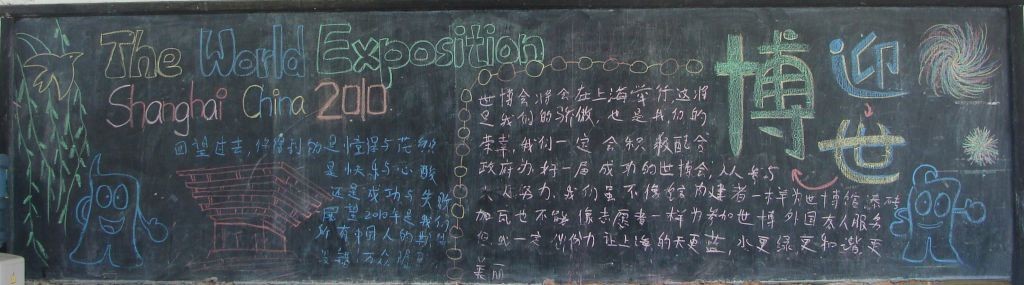 The World Exposition
Shanghai China 2010
迎
世
博
回望过去，你得到的是懂得与
是快乐与心酸
还是成功与失
愿望2010年是我们
所有中国人的
世博会将会在上海举行这将
是我们的骄傲，也是我们的
荣幸，我们一定会积极配合
政府办好一届成功的世博会，人人参与
人人努力，我们虽不像建者一样为世博馆添砖
加瓦也不能像志愿者一样为参加世博外国友人服务
但我一定让上海的天更蓝，水更绿更和谐更
美丽